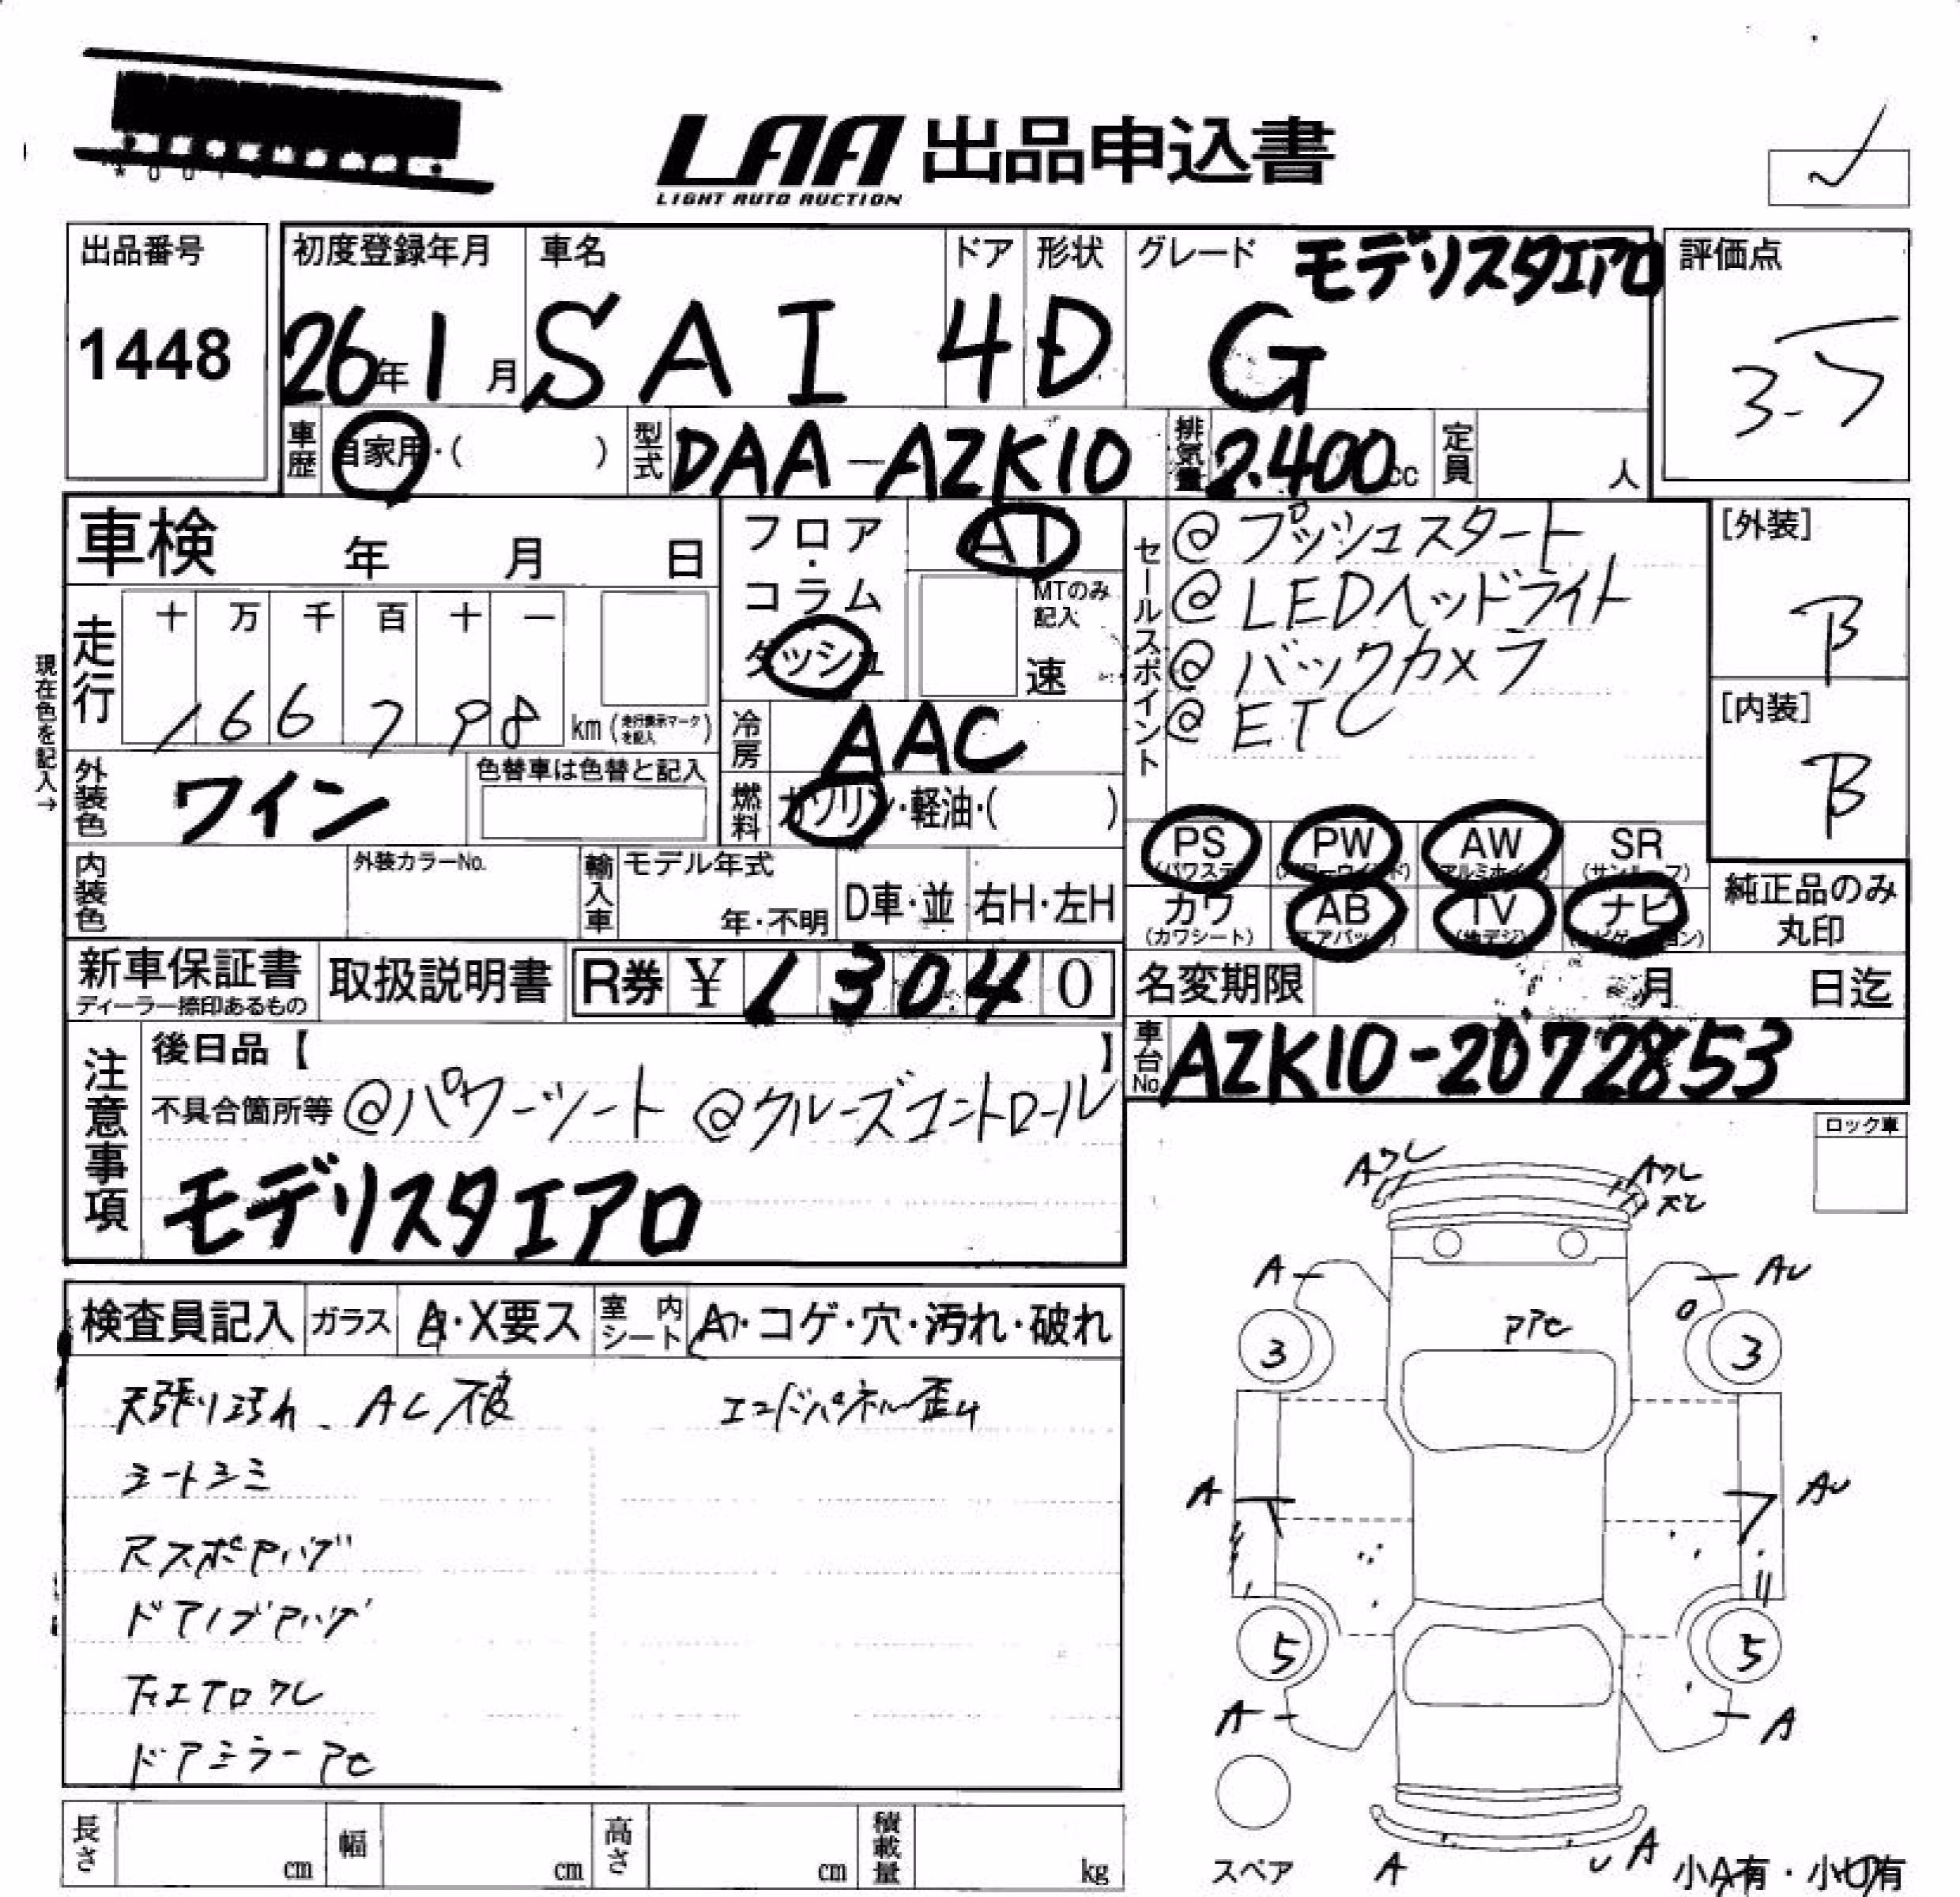 LAA 出品申込書
LIGHT AUTO AUCTION
出品番号
1448
初度登録年月
26年 1月
車名
SAI
ドア
4
形状
D
グレード モデリスタエアロ
G
評価点
3.5
車歴 自家用・( )
型式 DAA-AZK10
排気量 2.400cc
定員 人
車検 年 月 日
フロア・コラム ダッシュ
AT
MTのみ記入
速
現在色を記入→
走行
十 万 千 百 十 一
1 6 6 7 9 8 km (走行表示マークを記入)
冷房 AAC
外装色 ワイン
色替車は色替と記入
燃料 ガソリン・軽油・( )
内装色
外装カラーNo.
輸入車 モデル年式
年・不明
D車・並
右H・左H
セールスポイント
@プッシュスタート
@LEDヘッドライト
@バックカメラ
@ETC
[外装]
B
[内装]
B
PS (パワステ) PW (パワーウインド) AW (アルミホイル) SR (サンルーフ)
カワ (カワシート) AB (エアバック) TV (地デジ) ナビ (ナビゲーション)
純正品のみ丸印
新車保証書
ディーラー捺印あるもの
取扱説明書
R券 ¥ 13040
名変期限 月 日迄
車台No. AZK10-2072853
注意事項
後日品【 】
不具合箇所等 @パワーシート @クルーズコントロール
モデリスタエアロ
ロック車
検査員記入 ガラス A・X要ス 室内シート ・コゲ・穴・汚れ・破れ
天張り汚れ、AC不良
エンドパネル歪み
シートシミ
ドアノブ
ドアミラー
Aワレ
Aワレ
ズレ
A
AU
3
3
A
AU
5
5
A
A
A
U A
スペア
小A有・小U有
長さ cm 幅 cm 高さ cm 積載量 kg